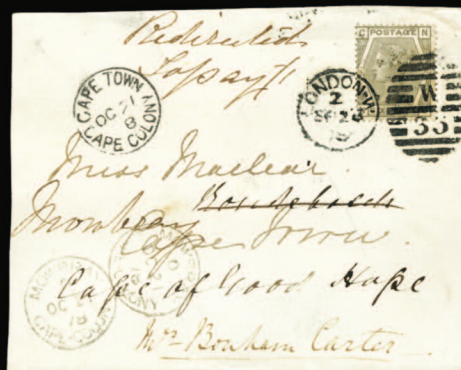 Redirected
To pay 1/
C POSTAGE N
CAPE TOWN
OC 21
8
CAPE COLONY
LONDON·W
2
SP 23
W
33
Miss Maclear
Mowbray
Cape Town
Cape of Good Hope
MOWBRAY
OC
78
CAPE-COLONY
Mrs Bonham Carter